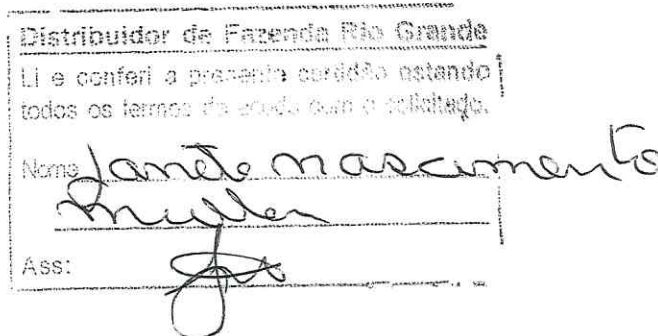 Distribuidor de Fazenda Rio Grande
Li e conferi a presente certidão estando
todos os termos de acordo com o solicitado.
Nome Janete Nascimento
Muller
Ass: